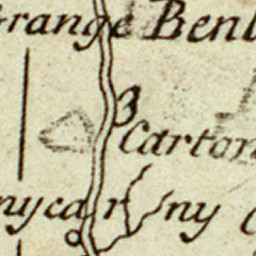 Grange Benl
3
Carton
nycarny